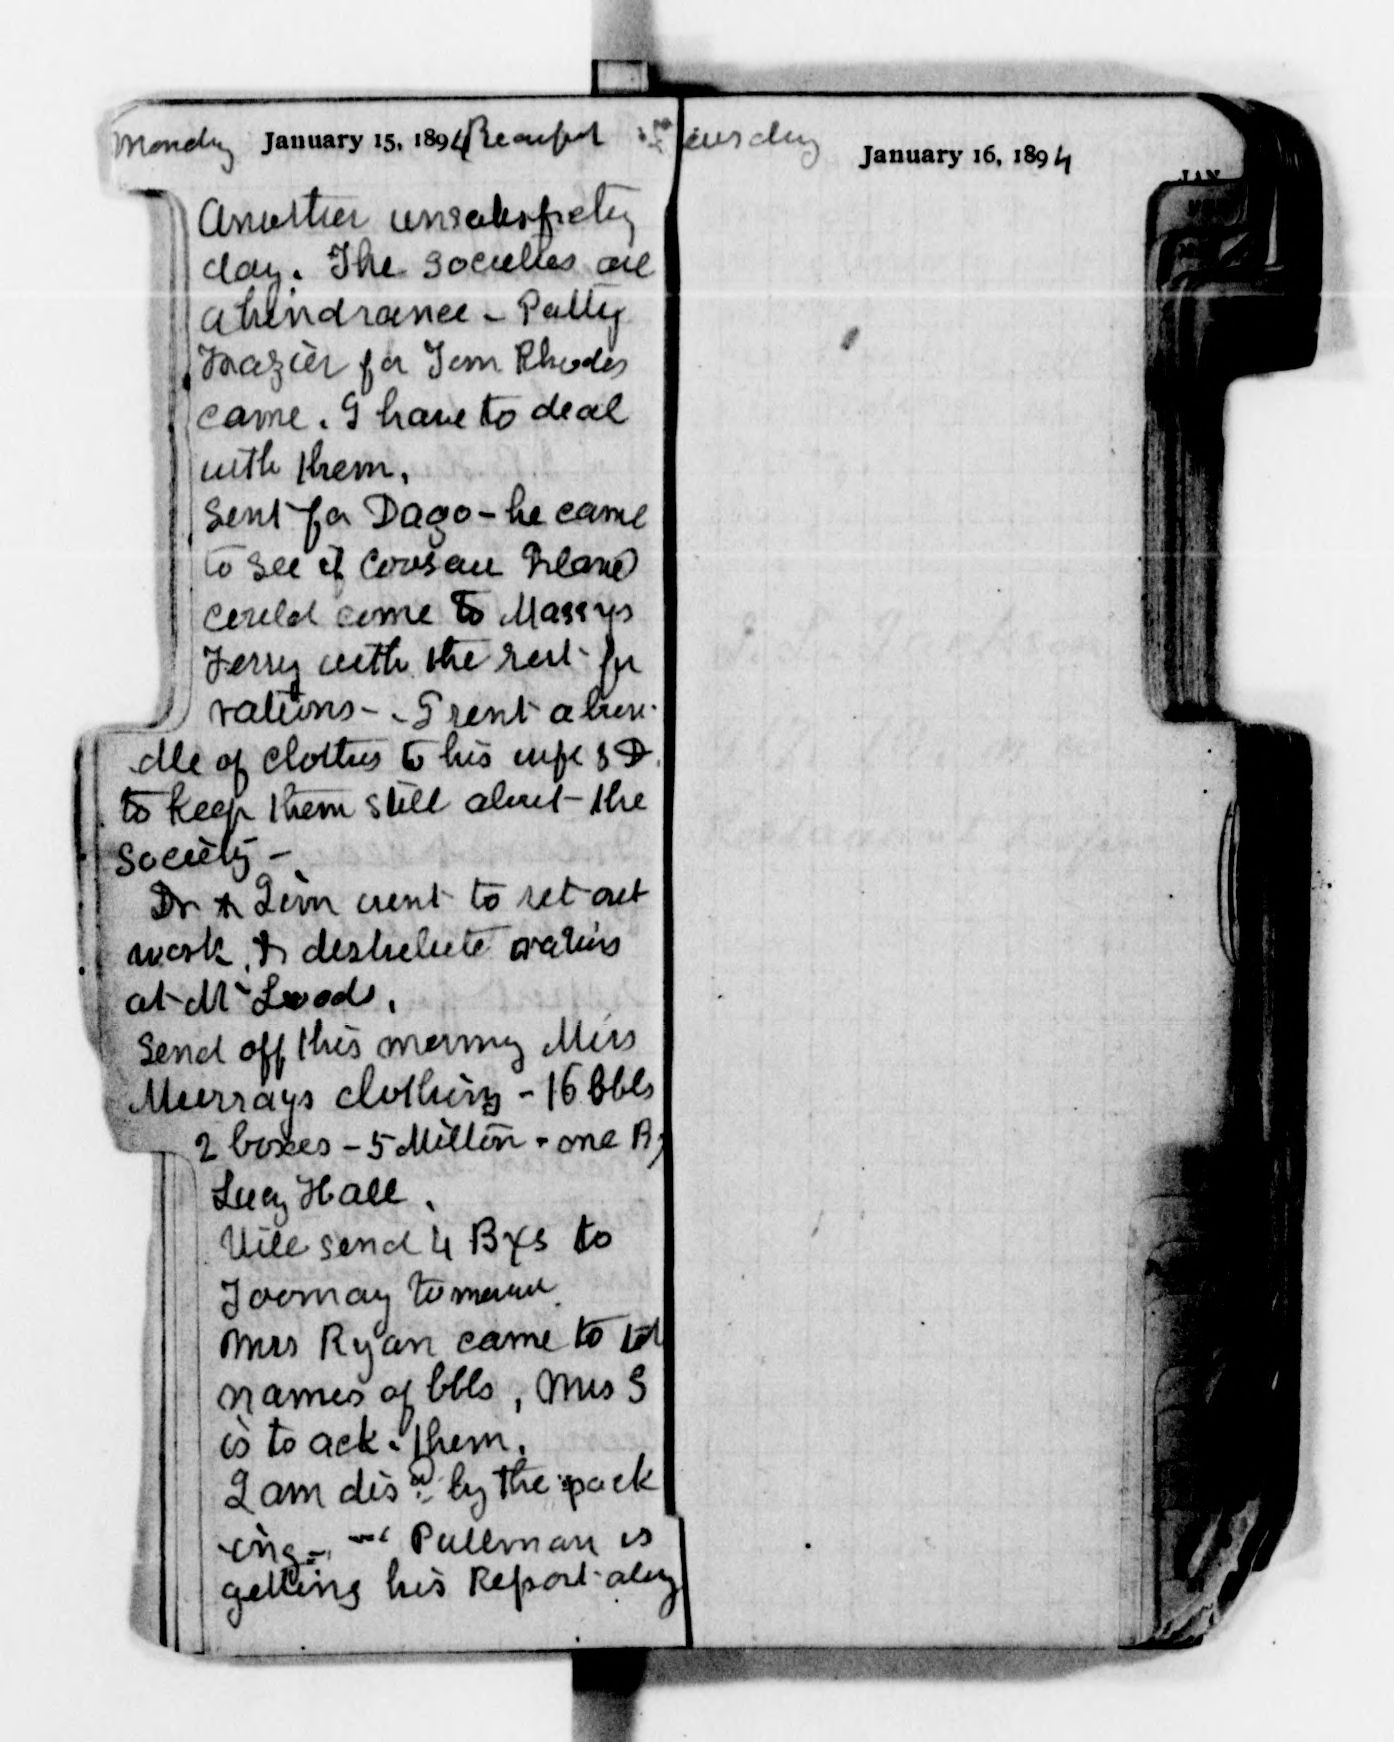 Monday January 15, 1894 Beaufort
Another unsatisfactory
day. The societies are
a hindrance - Patty
Frazier for Tom Rhodes
came. I have to deal
with them.
Sent for Dago - he came
to see if Coosaw Island
could come to Massys
Ferry with the rest for
rations - I sent a bun-
dle of clothes to his wife & D.
to keep them still about the
Society -
Dr & Linn went to set out
work, & distribute rations
at Mc Leods.
Send off this morning Miss
Murrays clothing - 16 bbls
2 boxes - 5 Milton - one B,
Lucy Hall.
Will send 4 Bxs to
Toomay tomorrow
Mrs Ryan came to
names of bbls, Mrs S
is to ack. them.
I am dis by the pack
ing - Pullman is
getting his Report along
Tuesday January 16, 1894
JAN